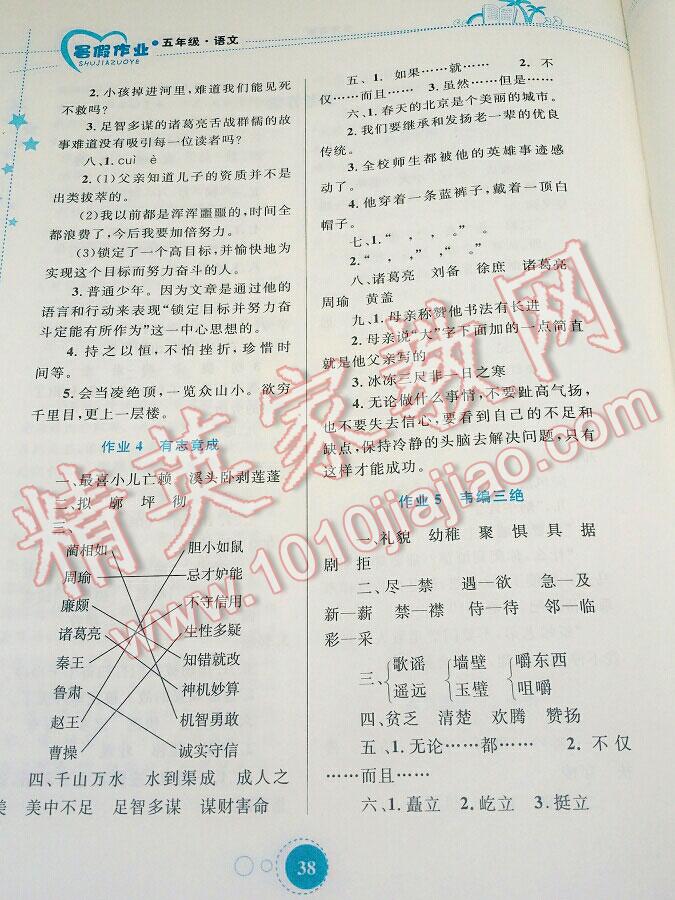 暑假作业
SHUJIAZUOYE
五年级·语文
2. 小孩掉进河里,难道我们能见死
不救吗?
3. 足智多谋的诸葛亮舌战群儒的故
事难道没有吸引每一位读者吗?
八、1. cuì è
2. (1)父亲知道儿子的资质并不是
出类拔萃的。
(2)我以前都是浑浑噩噩的,时间全
都浪费了,今后我要加倍努力。
(3)锁定了一个高目标,并愉快地为
实现这个目标而努力奋斗的人。
3. 普通少年。因为文章是通过他的
语言和行动来表现“锁定目标并努力奋
斗定能有所作为”这一中心思想的。
4. 持之以恒,不怕挫折,珍惜时
间等。
5. 会当凌绝顶,一览众山小。欲穷
千里目,更上一层楼。
作业4 有志竟成
一、最喜小儿亡赖 溪头卧剥莲蓬
二、拟 廓 坪 彻
三、
蔺相如 胆小如鼠
周瑜 忌才妒能
廉颇 不守信用
诸葛亮 生性多疑
秦王 知错就改
鲁肃 神机妙算
赵王 机智勇敢
曹操 诚实守信
四、千山万水 水到渠成 成人之
美 美中不足 足智多谋 谋财害命
五、1. 如果……就…… 2. 不
仅……而且…… 3. 虽然……但是……
六、1. 春天的北京是个美丽的城市。
2. 我们要继承和发扬老一辈的优良
传统。
3. 全校师生都被他的英雄事迹感
动了。
4. 他穿着一条蓝裤子,戴着一顶白
帽子。
七、1. “ , , 。” 。
2. “ , ” , “ 。”
八、诸葛亮 刘备 徐庶 诸葛亮
周瑜 黄盖
九、1. 母亲称赞他书法有长进
2. 母亲说“大”字下面加的一点简直
就是他父亲写的
3. 冰冻三尺非一日之寒
4. 无论做什么事情,不要趾高气扬,
也不要失去信心,要看到自己的不足和
缺点,保持冷静的头脑去解决问题,只有
这样才能成功。
作业5 韦编三绝
一、礼貌 幼稚 聚 惧 具 据
剧 拒
二、尽—禁 遇—欲 急—及
新—薪 禁—襟 侍—待 邻—临
彩—采
三、歌谣 墙壁 嚼东西
遥远 玉璧 咀嚼
四、贫乏 清楚 欢腾 赞扬
五、1. 无论……都…… 2. 不仅
……而且……
六、1. 矗立 2. 屹立 3. 挺立
38
精英家教网
www.1010jiajiao.com